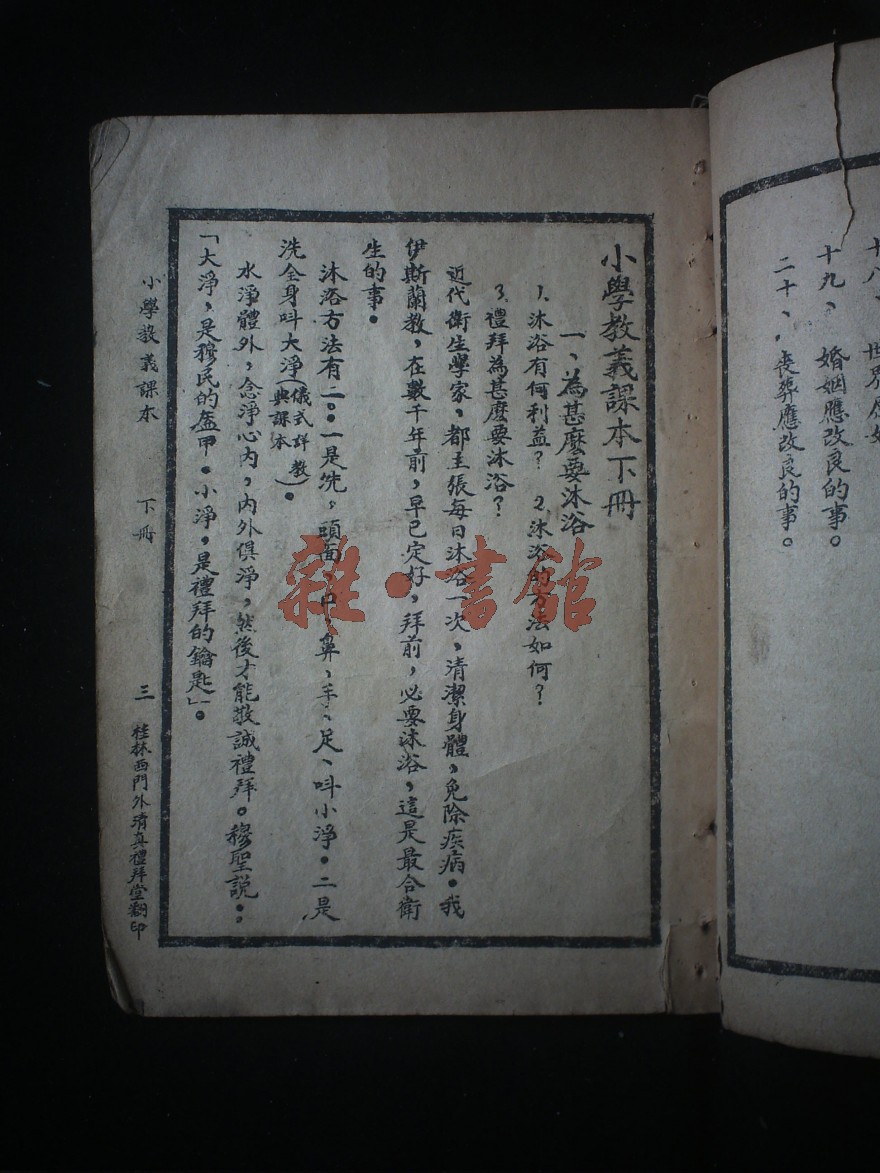 十八、世界
十九、婚姻應改良的事。
二十、喪葬應改良的事。
小學教義課本下冊
一、為甚麼要沐浴
1.沐浴有何利益？ 2.沐浴的方法如何？
3.禮拜為甚麼要沐浴？
近代衛生學家，都主張每日沐浴一次，清潔身體，免除疾病。我
伊斯蘭教，在數千年前，早已定好，拜前，必要沐浴，這是最合衛
生的事。
沐浴方法有二：一是洗，頭面、口、鼻、手、足、叫小淨。二是
洗全身叫大淨（儀式詳教典課本）。
水淨體外，念淨心內，內外俱淨，然後才能敬誠禮拜。穆聖說：
「大淨，是穆民的盔甲。小淨，是禮拜的鑰匙」。
小學教義課本 下冊 三 桂林西門外清真禮拜堂翻印
雜·書館